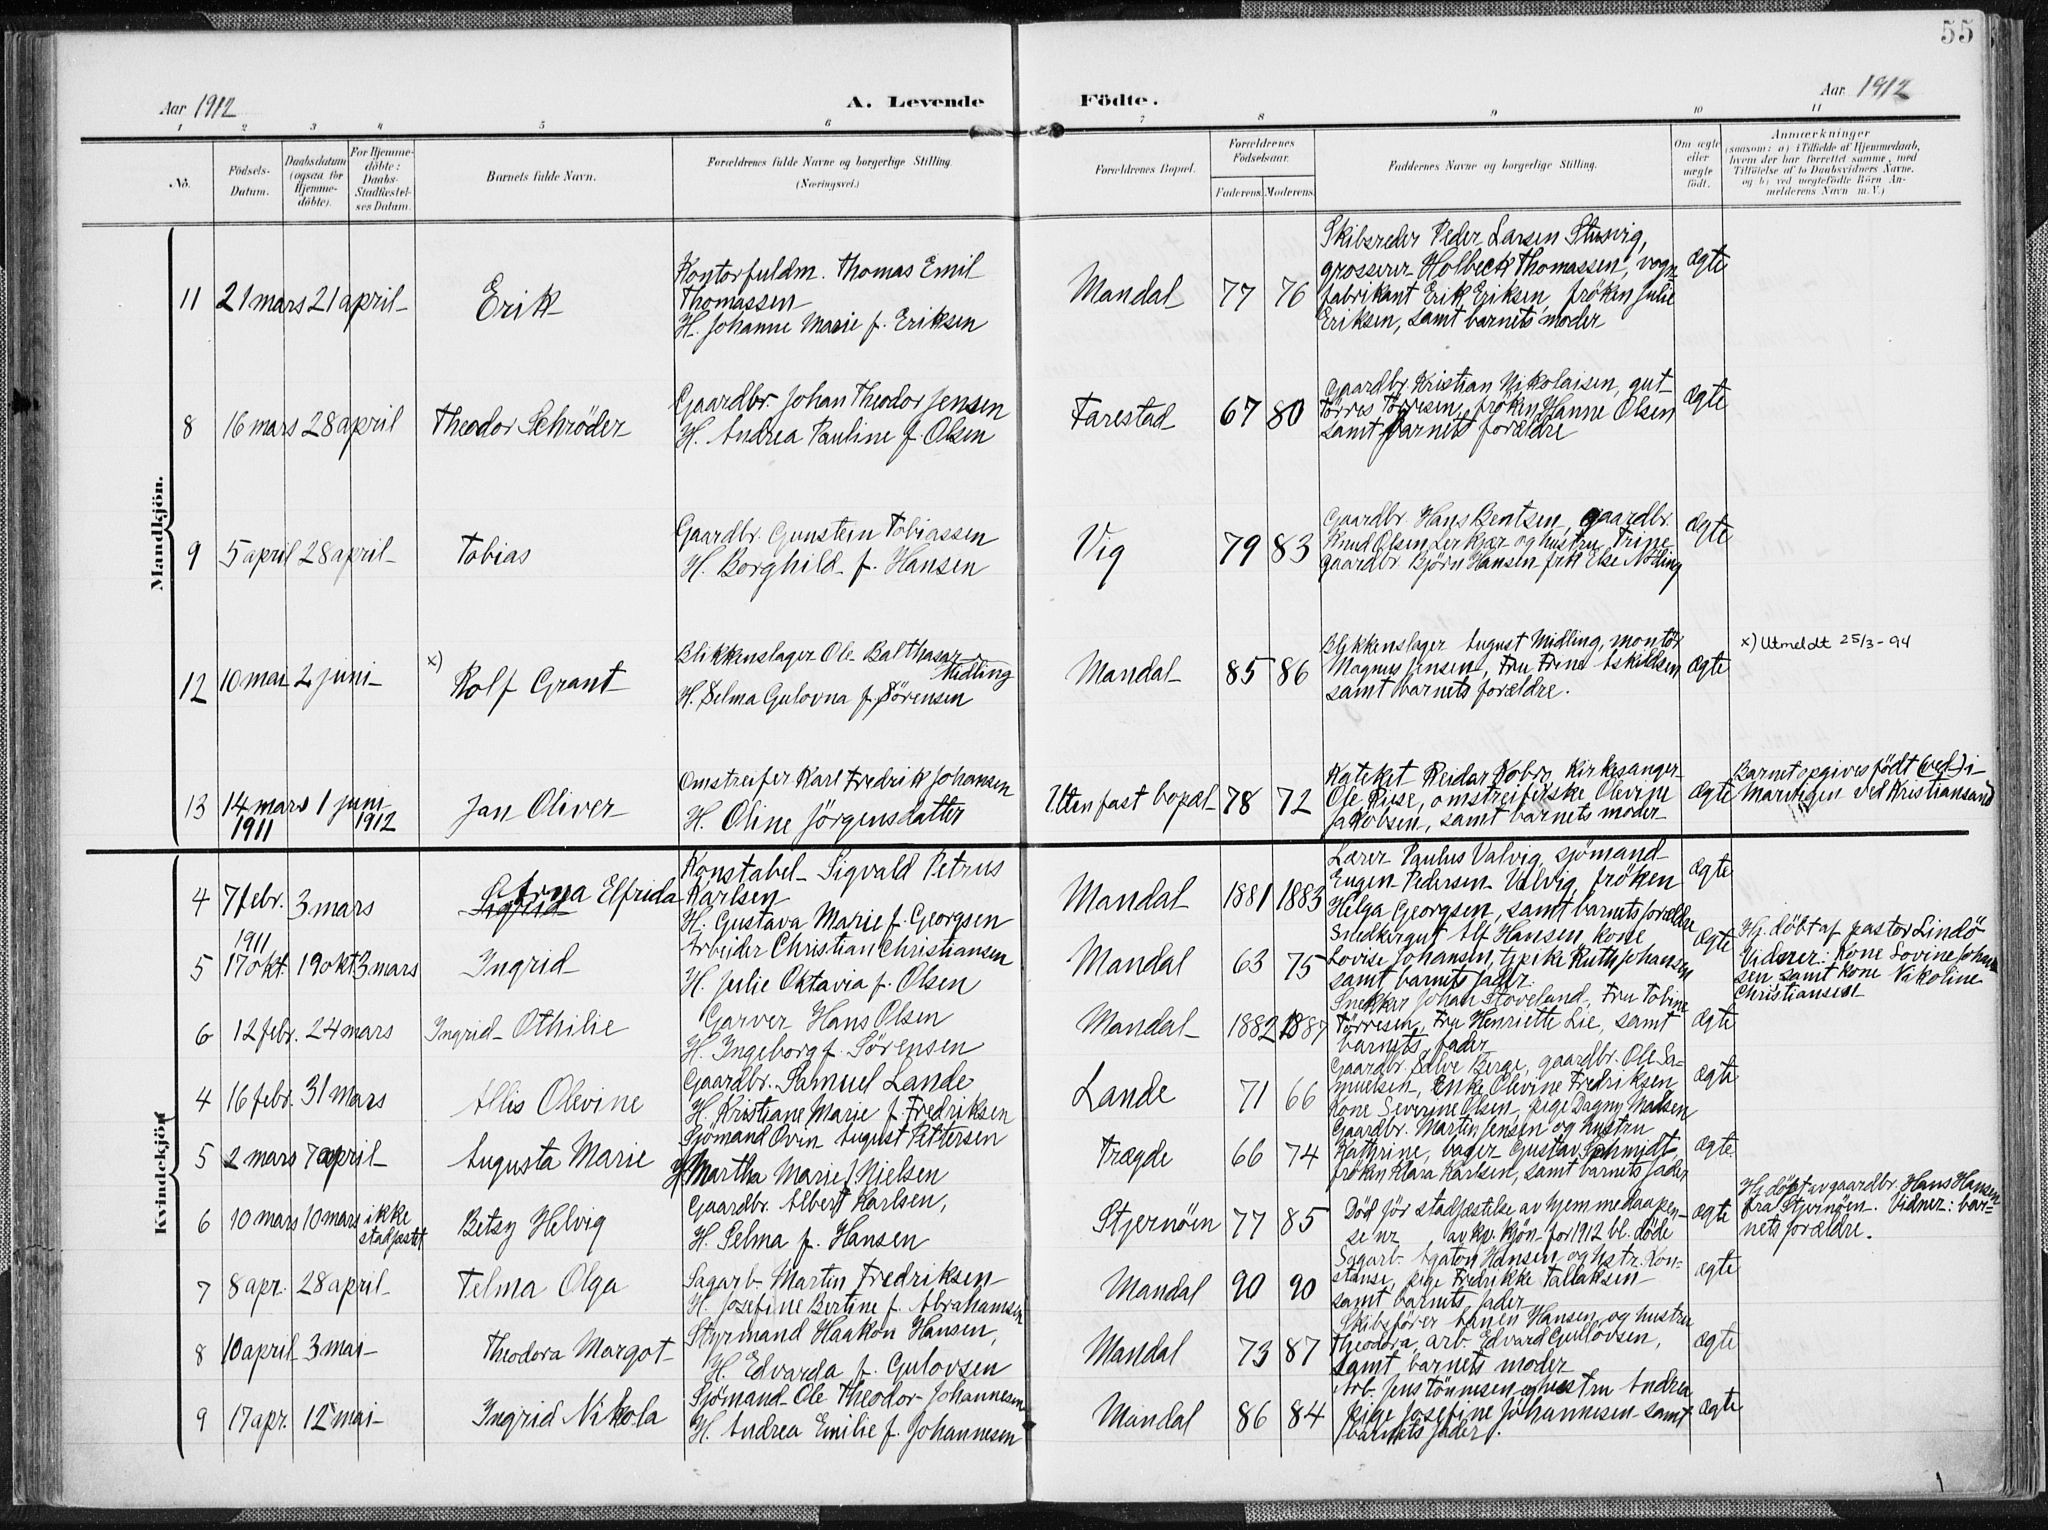 55
Aar 1912
A. Levende Födte.
Aar 1912
1 2 3 4 5 6 7 8 9 10 11
No.
Födsels-Datum.
Daabsdatum (ogsaa for Hjemme-döbte).
For Hjemme-döbte: Daabs-Stadfæstel-ses Datum.
Barnets fulde Navn.
Forældrenes fulde Navne og borgerlige Stilling.
(Næringsvei.)
Forældrenes Bopæl.
Forældrenes Födselsaar.
Faderens Moderens
Faddernes Navne og borgerlige Stilling.
Om ægte eller uægte födt.
Anmærkninger
(saasom: a) i Tilfælde af Hjemmedaab, hvem der har forrettet samme, med Tilföielse af to Daabsvidners Navne. og b) ved uægtefödte Börn An-melderens Navn m. V.)
Mandkjön.
11 21 mars 21 april Erik
Kontorfuldm. Thomas Emil
Thomassen
H. Johanne Marie f. Eriksen
Mandal 77 76
Skibsreder Peder Larsen Stusvig,
grosserer Holbeck Thomassen, vogn-
fabrikant Erik Eriksen, fröken Julie
Eriksen, samt barnets moder
ægte
8 16 mars 28 april Theodor Schröder
Gaardbr. Johan Theodor Jensen
H. Andrea Pauline f. Olsen
Farestad 67 80
Gaardbr. Kristian Nikolaisen, gut
Törres Törresen, fröken Hanne Olsen
samt barnets forældre
ægte
9 5 april 28 april Tobias
Gaardbr. Gunstein Tobiassen
H. Borghild f. Hansen
Vig 79 83
Gaardbr. Hans Bentsen, gaardbr.
Knud Olsen Lerkjær og hustru Trine
gaardbr. Björn Hansen frk Else Nöding
ægte
12 10 mai 2 juni x) Rolf Grant
Blikkenslager Ole Balthasar
Midling
H. Selma Gulovna f. Sörensen
Mandal 85 86
Blikkenslager August Midling, montör
Magnus Jensen, Fru Trine Askildsen
samt barnets forældre.
ægte
x) Utmeldt 25/3-94
13 14 mars 1911 1 juni 1912 Jan Oliver
Omstreifer Karl Fredrik Johansen
H. Oline Jörgensdatter
Uten fast bopæl 78 72
Kateket Reidar Kobro, kirkesanger
Ole Ruse, omstreiferske Olevine
Jakobsen, samt barnets moder
ægte
Barnet opgives födt (ved) i
Marvigen ved Kristiansand
Kvindekjön
4 7 febr. 3 mars Sigrid Arna Elfrida
Konstabel Sigvald Petrus
Karlsen
H. Gustava Marie f. Georgsen
Mandal 1881 1883
Lærer Paulus Valvig, sjömand
Eugen Pedersen Valvig, fröken
Helga Georgsen, samt barnets forældre
ægte
5 1911 17 okt. 19 okt 3 mars Ingrid
Arbeider Christian Christiansen
H. Julie Oktavia f. Olsen
Mandal 63 75
Smedkergut Alf Hansen, kone
Lovise Johansen, pike Ruth Johansen
samt barnets fader.
ægte
Hj. döbt af pastor Lindö
Vidner: Kone Lovine Johan
sen samt kone Nikoline
Christiansen
6 12 febr. 24 mars Ingrid Othilie
Garver Hans Olsen
H. Ingeborg f. Sörensen
Mandal 1882 1887
Snekker Johan Stoveland, Fru Tobine
Törresen, Fru Henriette Lie, samt
barnets fader
ægte
4 16 febr. 31 mars Allis Olevine
Gaardbr. Samuel Lande
H. Kristiane Marie f. Fredriksen
Lande 71 66
Gaardbr. Salve Berge, gaardbr. Ole Sa-
muelsen, Enke Olevine Fredriksen
Kone Severine Olsen, pige Dagny Madsen
ægte
5 2 mars 7 april Augusta Marie
Sjömand Ovin August Pettersen
H. Martha Marie f. Nielsen
Trægde 66 74
Gaardbr. Martin Jensen og hustru
Kathrine, bager Gustav Schmidt,
fröken Klara Karlsen, samt barnets fader
ægte
6 10 mars 10 mars ikke stadfæstet Betsy Helvig
Gaardbr. Albert Karlsen,
H. Selma f. Hansen
Stjernöen 77 85
Död för stadfæstelse av hjemmedaapen
se nr av kv. kjön for 1912 bl. döde
ægte
Hj. döbt av gaardbr. Hans Hansen
fra Stjernöen. Vidner: bar-
nets forældre.
7 8 apr. 28 april Telma Olga
Sagarb. Martin Fredriksen
H. Josefine Bertine f. Abrahamsen
Mandal 90 90
Sagarb. Agaton Hansen og hstr. Kon-
stanse, pige Fredrikke Tallaksen
samt barnets fader
ægte
8 10 april 3 mai Theodora Margot
Styrmand Haakon Hansen,
H. Edvarda f. Gulovsen
Mandal 73 87
Skibsförer Hansen og hustru
Theodora, arb. Edvard Gullovsen,
samt barnets moder
ægte
9 17 apr. 12 mai Ingrid Nikola
Sjömand Ole Theodor Johannesen
H. Andrea Emilie f. Johannesen
Mandal 86 84
Arb. Jens Tönnesen og hustru Andrea
pige Josefine Johannesen samt
barnets fader.
ægte